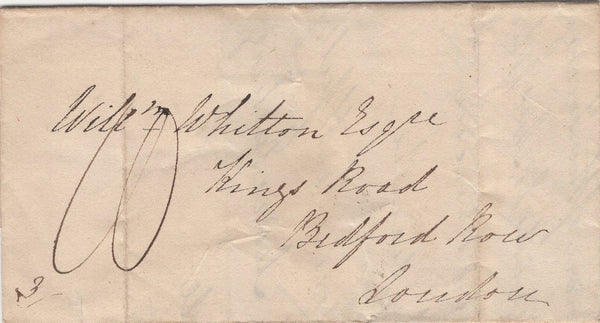 Will^m Whitton Esqre
Kings Road
Bedford Row
London
3